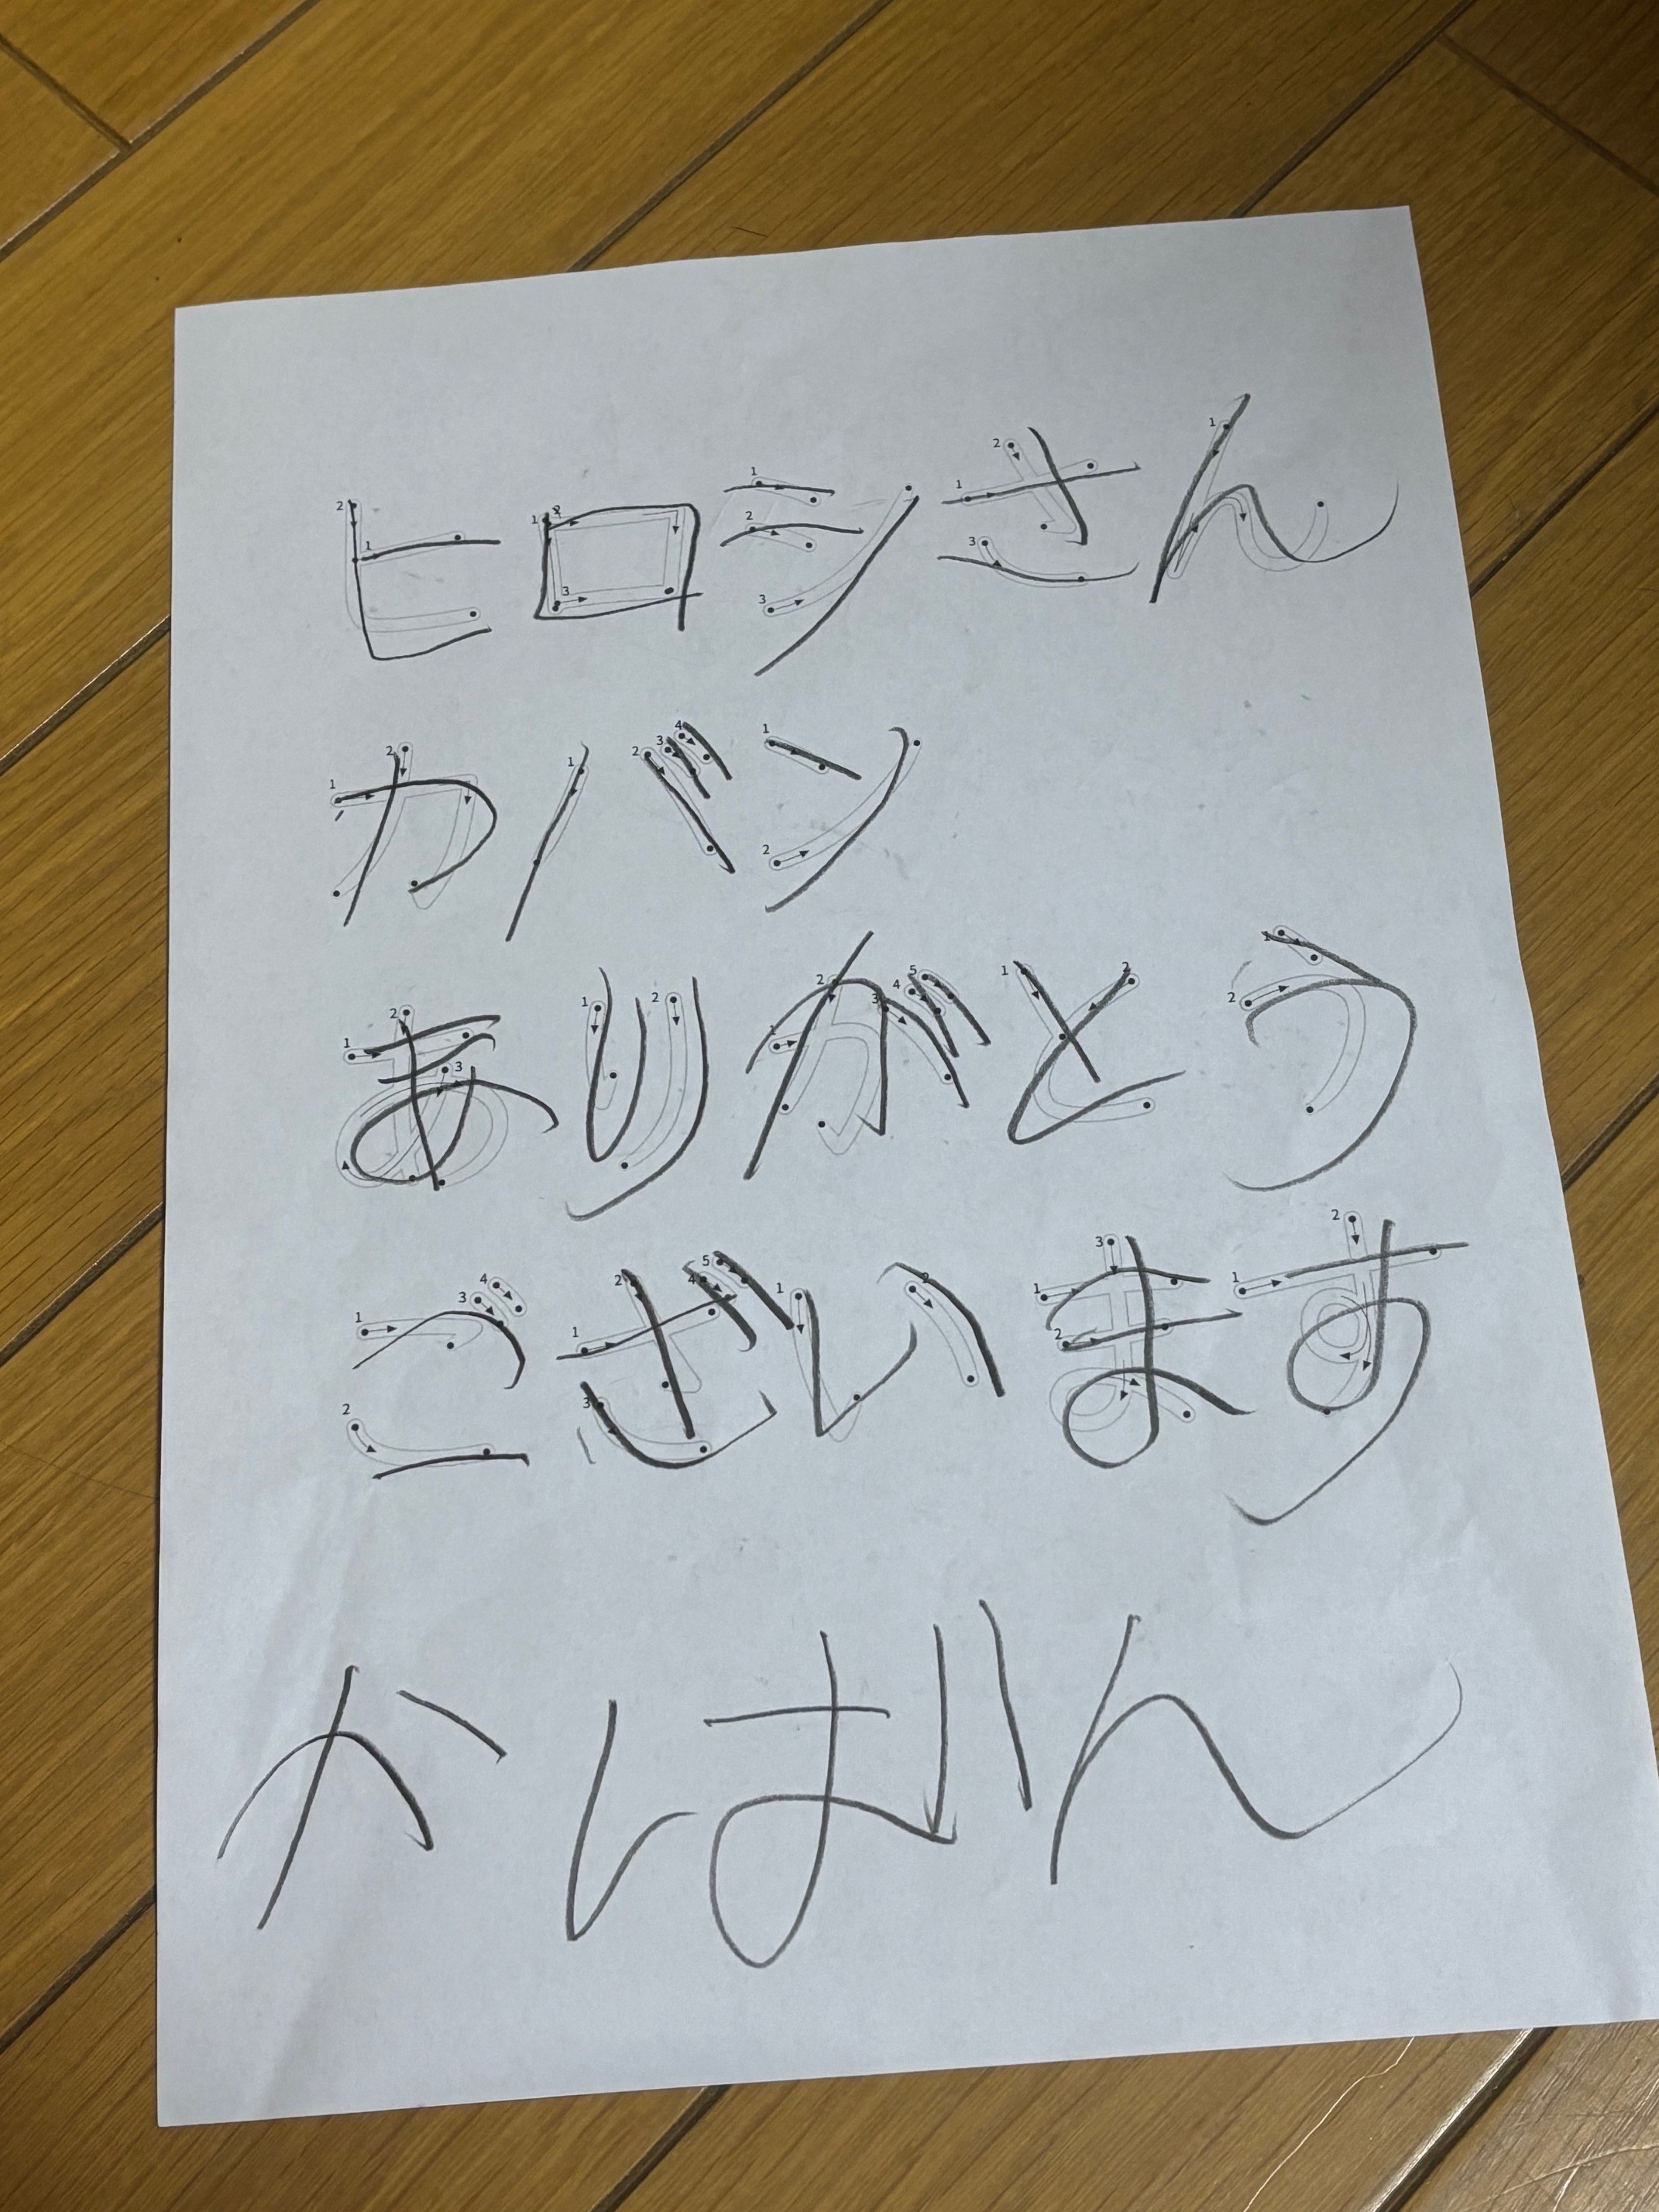 ヒロシさん
カバン
ありがとう
ございます
かばん